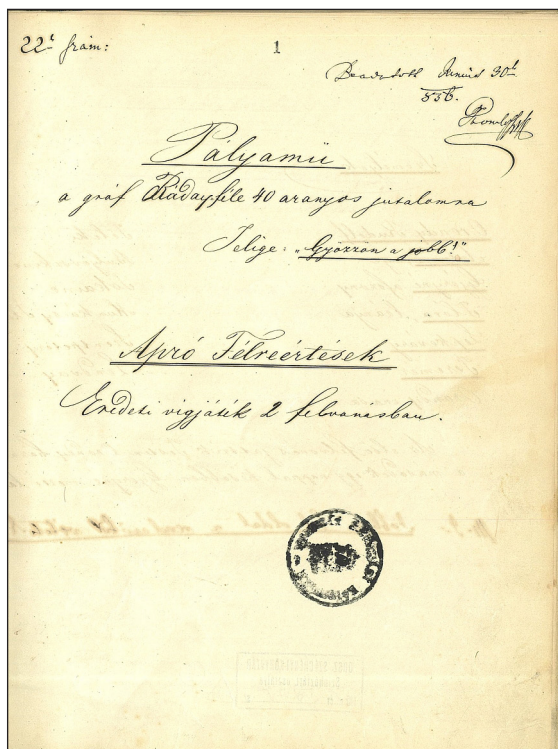 22ᵈ szám:
1
Beadatott Június 30ᵈ
856.
Pályamű
a gróf Ráday féle 40 aranyos jutalomra
Jelige: „Győzzön a jobb!”
Apró Félreértések
Eredeti vigjáték 2 felvonásban.